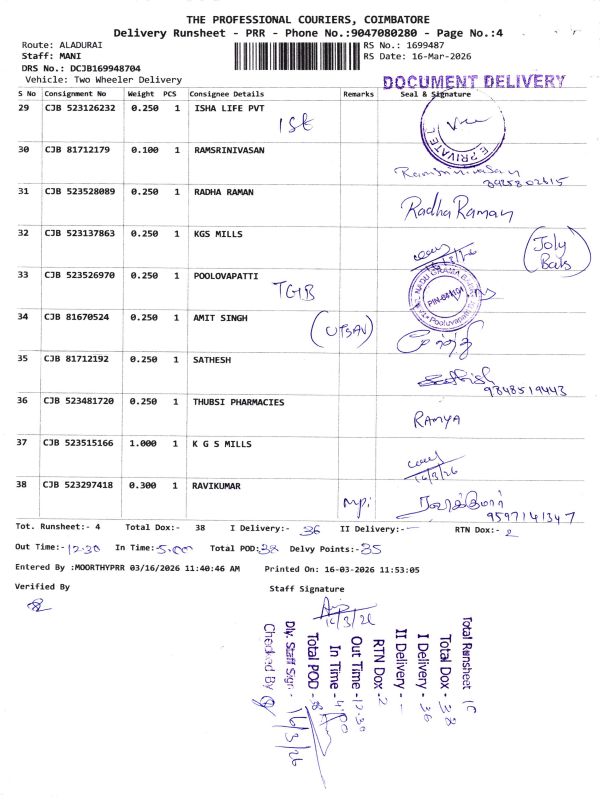 THE PROFESSIONAL COURIERS, COIMBATORE
Delivery Runsheet - PRR - Phone No.:9047080280 - Page No.:4
Route: ALADURAI
RS No.: 1699487
Staff: MANI
RS Date: 16-Mar-2026
DRS No.: DCJB169948704
Vehicle: Two Wheeler Delivery
DOCUMENT DELIVERY
S No Consignment No Weight PCS Consignee Details Remarks Seal & Signature
29 CJB 523126232 0.250 1 ISHA LIFE PVT
E PRIVATE L
30 CJB 81712179 0.100 1 RAMSRINIVASAN
Ramsrinivasan
31 CJB 523528089 0.250 1 RADHA RAMAN
Radha Raman
32 CJB 523137863 0.250 1 KGS MILLS
16/3/26
Joly
33 CJB 523526970 0.250 1 POOLOVAPATTI
TGB
34 CJB 81670524 0.250 1 AMIT SINGH
(UTSAV)
35 CJB 81712192 0.250 1 SATHESH
Sathish
9848519443
36 CJB 523481720 0.250 1 THUBSI PHARMACIES
RAMYA
37 CJB 523515166 1.000 1 K G S MILLS
16/3/26
38 CJB 523297418 0.300 1 RAVIKUMAR
ரவிக்குமார்
9597141347
Tot. Runsheet:- 4 Total Dox:- 38 I Delivery:- 36 II Delivery:- - RTN Dox:- 2
Out Time:- 12.30 In Time:- 5.00 Total POD:- 38 Delvy Points:- 35
Entered By :MOORTHYPRR 03/16/2026 11:40:46 AM Printed On: 16-03-2026 11:53:05
Verified By Staff Signature
16/3/26
Total Runsheet 10
Total Dox - 38
I Delivery - 36
II Delivery - -
RTN Dox - 2
Out Time - 12.30
In Time - 4.00
Total POD - 38
Dly. Staff Sign -
Checked By
16/3/26